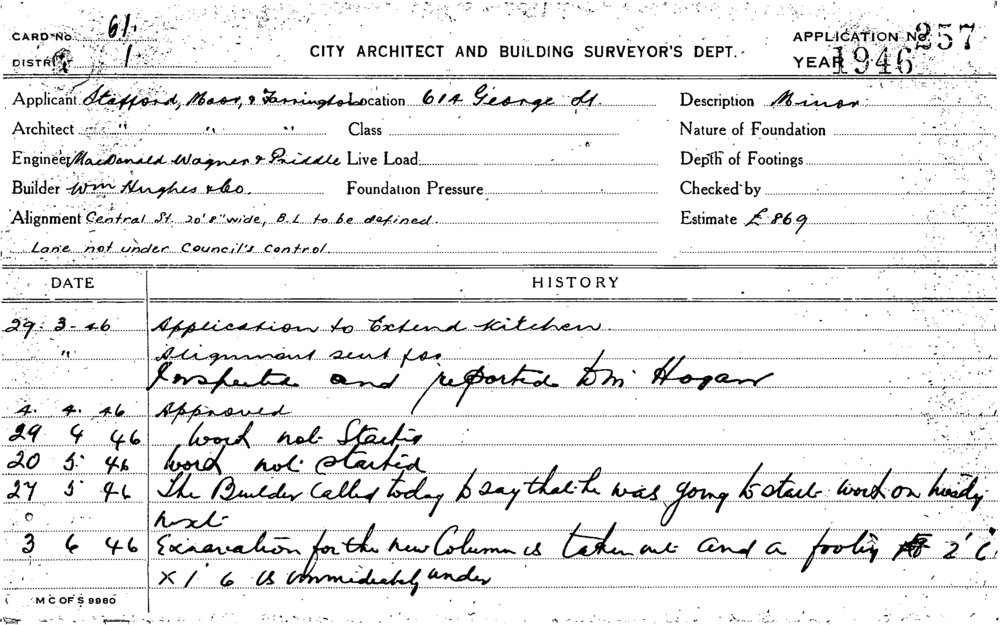 CARD No. 61.
DISTRICT 1
CITY ARCHITECT AND BUILDING SURVEYOR'S DEPT.
APPLICATION No. 257
YEAR 1946
Applicant Stafford, Moor, & Farrington Location 614 George St. Description Minor
Architect " " " Class Nature of Foundation
Engineer MacDonald Wagner & Priddle Live Load Depth of Footings
Builder Wm Hughes & Co. Foundation Pressure Checked by
Alignment Central St. 20'8" wide, B.L to be defined. Estimate £869
Lane not under Council's Control.
DATE HISTORY
29. 3 - 46 Application to Extend Kitchen.
" Alignment sent for
Inspected and reported to Mr Hogan
4. 4. 46 Approved
29 4 46 Work not Started
20 5 46 Work not started
27 5 46 The Builder Called today to say that he was going to start work on
next
3 6 46 Excavation for the new Column is taken out and a footing 2' 6"
x 1' 6 is immediately under
M C OF S 9980